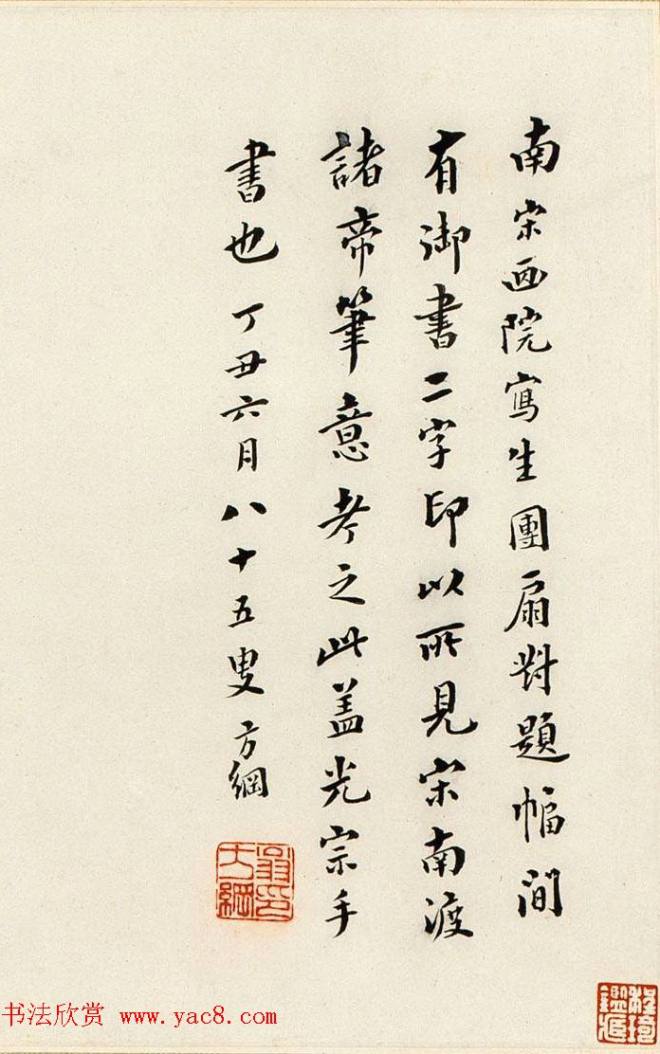 南宋畫院寫生團扇對題幅間
有御書二字印以所見宋南渡
諸帝筆意考之此盖光宗手
書也丁丑六月八十五叟方綱
翁方綱印
书法欣赏 www.yac8.com